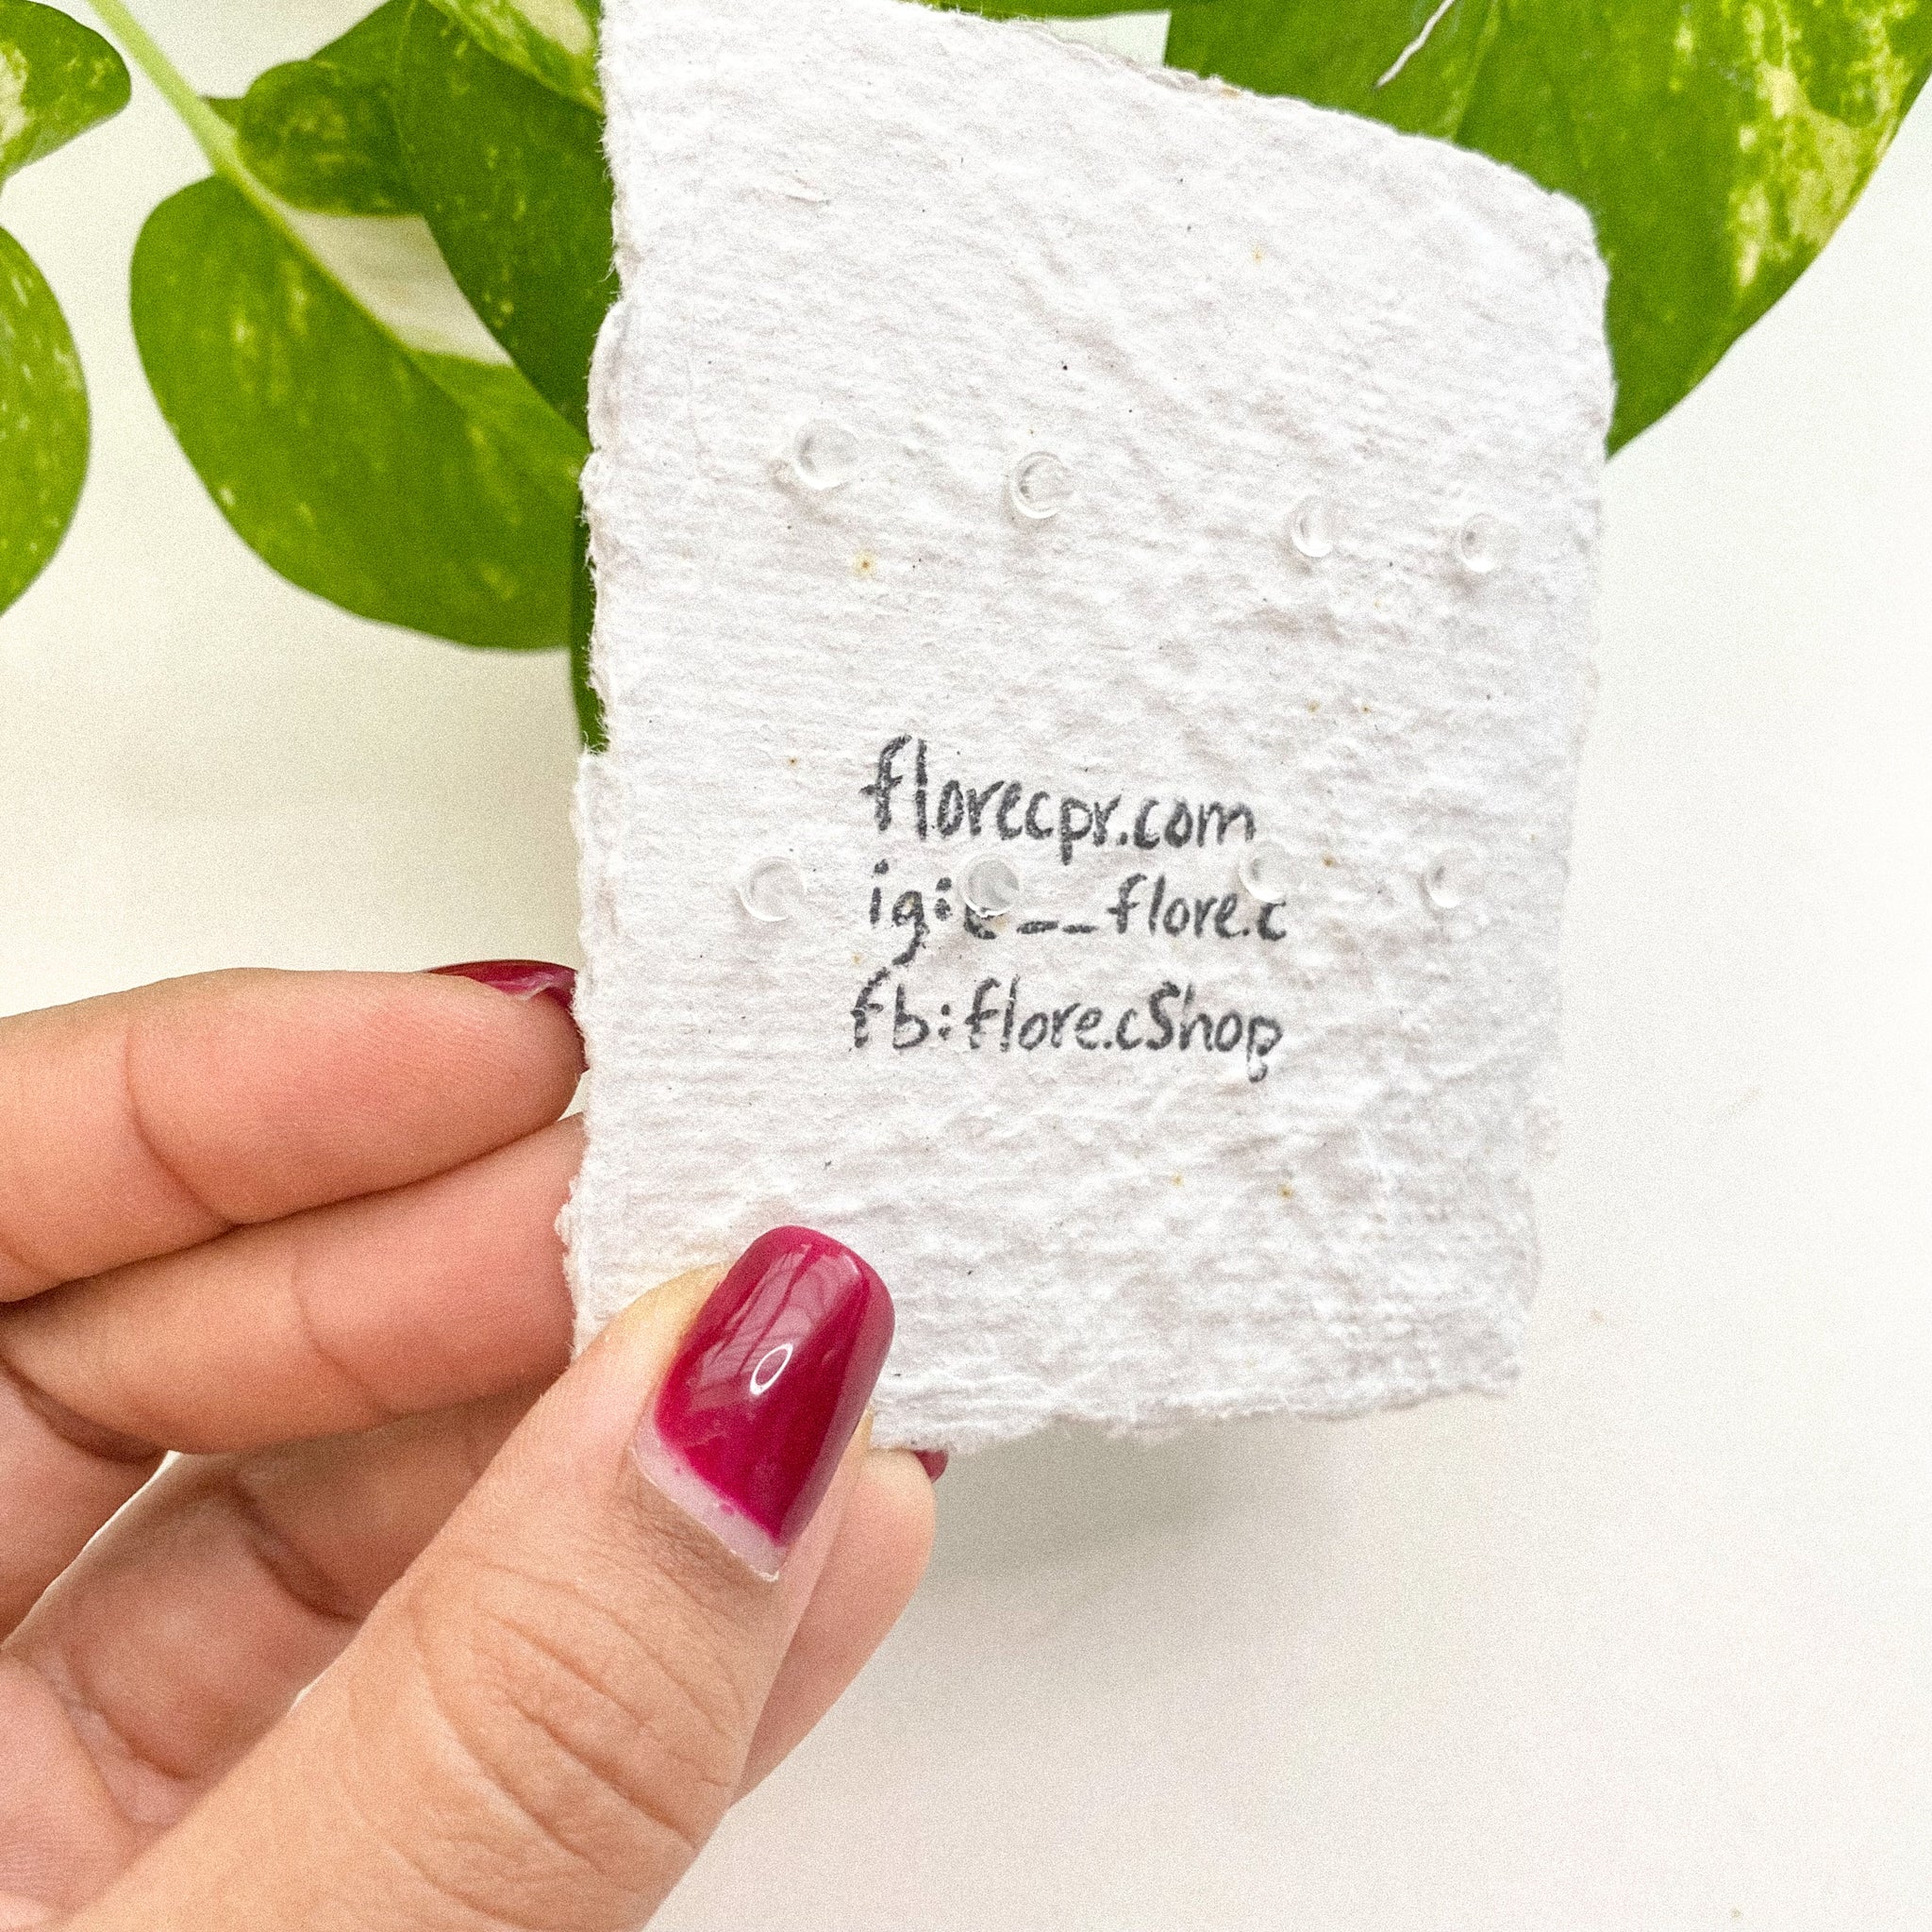 florecpr.com
ig: __flore.c
fb:flore.cShop